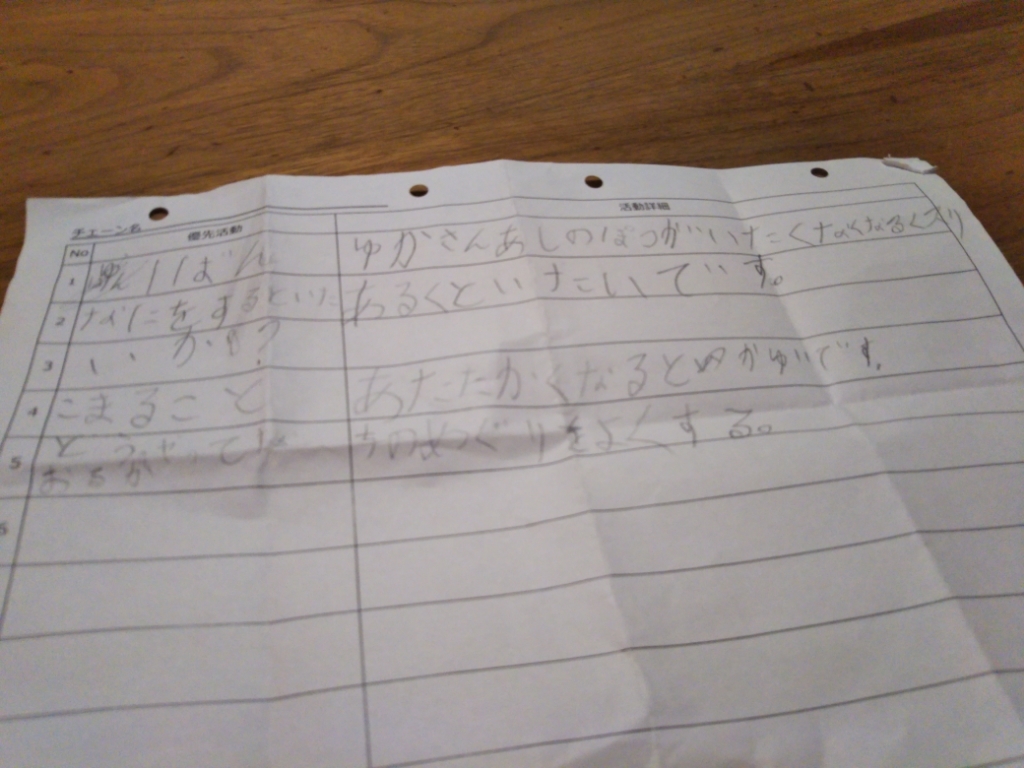 チェーン名
No 優先活動 活動詳細
1 いしばん ゆかさんあしのばつがいたくなくなるくスリ
2 なにをするといた あるくといたいです。
3 いかも?
4 こまること あたたかくなるとかゆいです。
5 どうやって ちのめぐりをよくする。
おるか
6